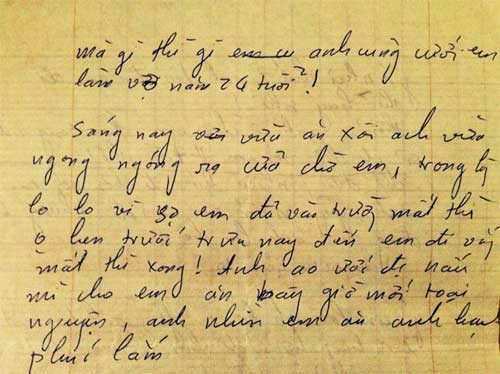 mà gì thì gì anh cũng cưới em
làm vợ năm 24 tuổi!
Sáng nay vừa ăn xôi anh vừa
ngong ngóng ra cửa chờ em, trong lòng
lo lo vì sợ em đã vào trường mất thì
trưa nay đến em đi vắng
mất thì xong! Anh ao ước được nấu
mì cho em ăn bây giờ mới toại
nguyện, anh nhìn em ăn anh hạnh
phúc lắm